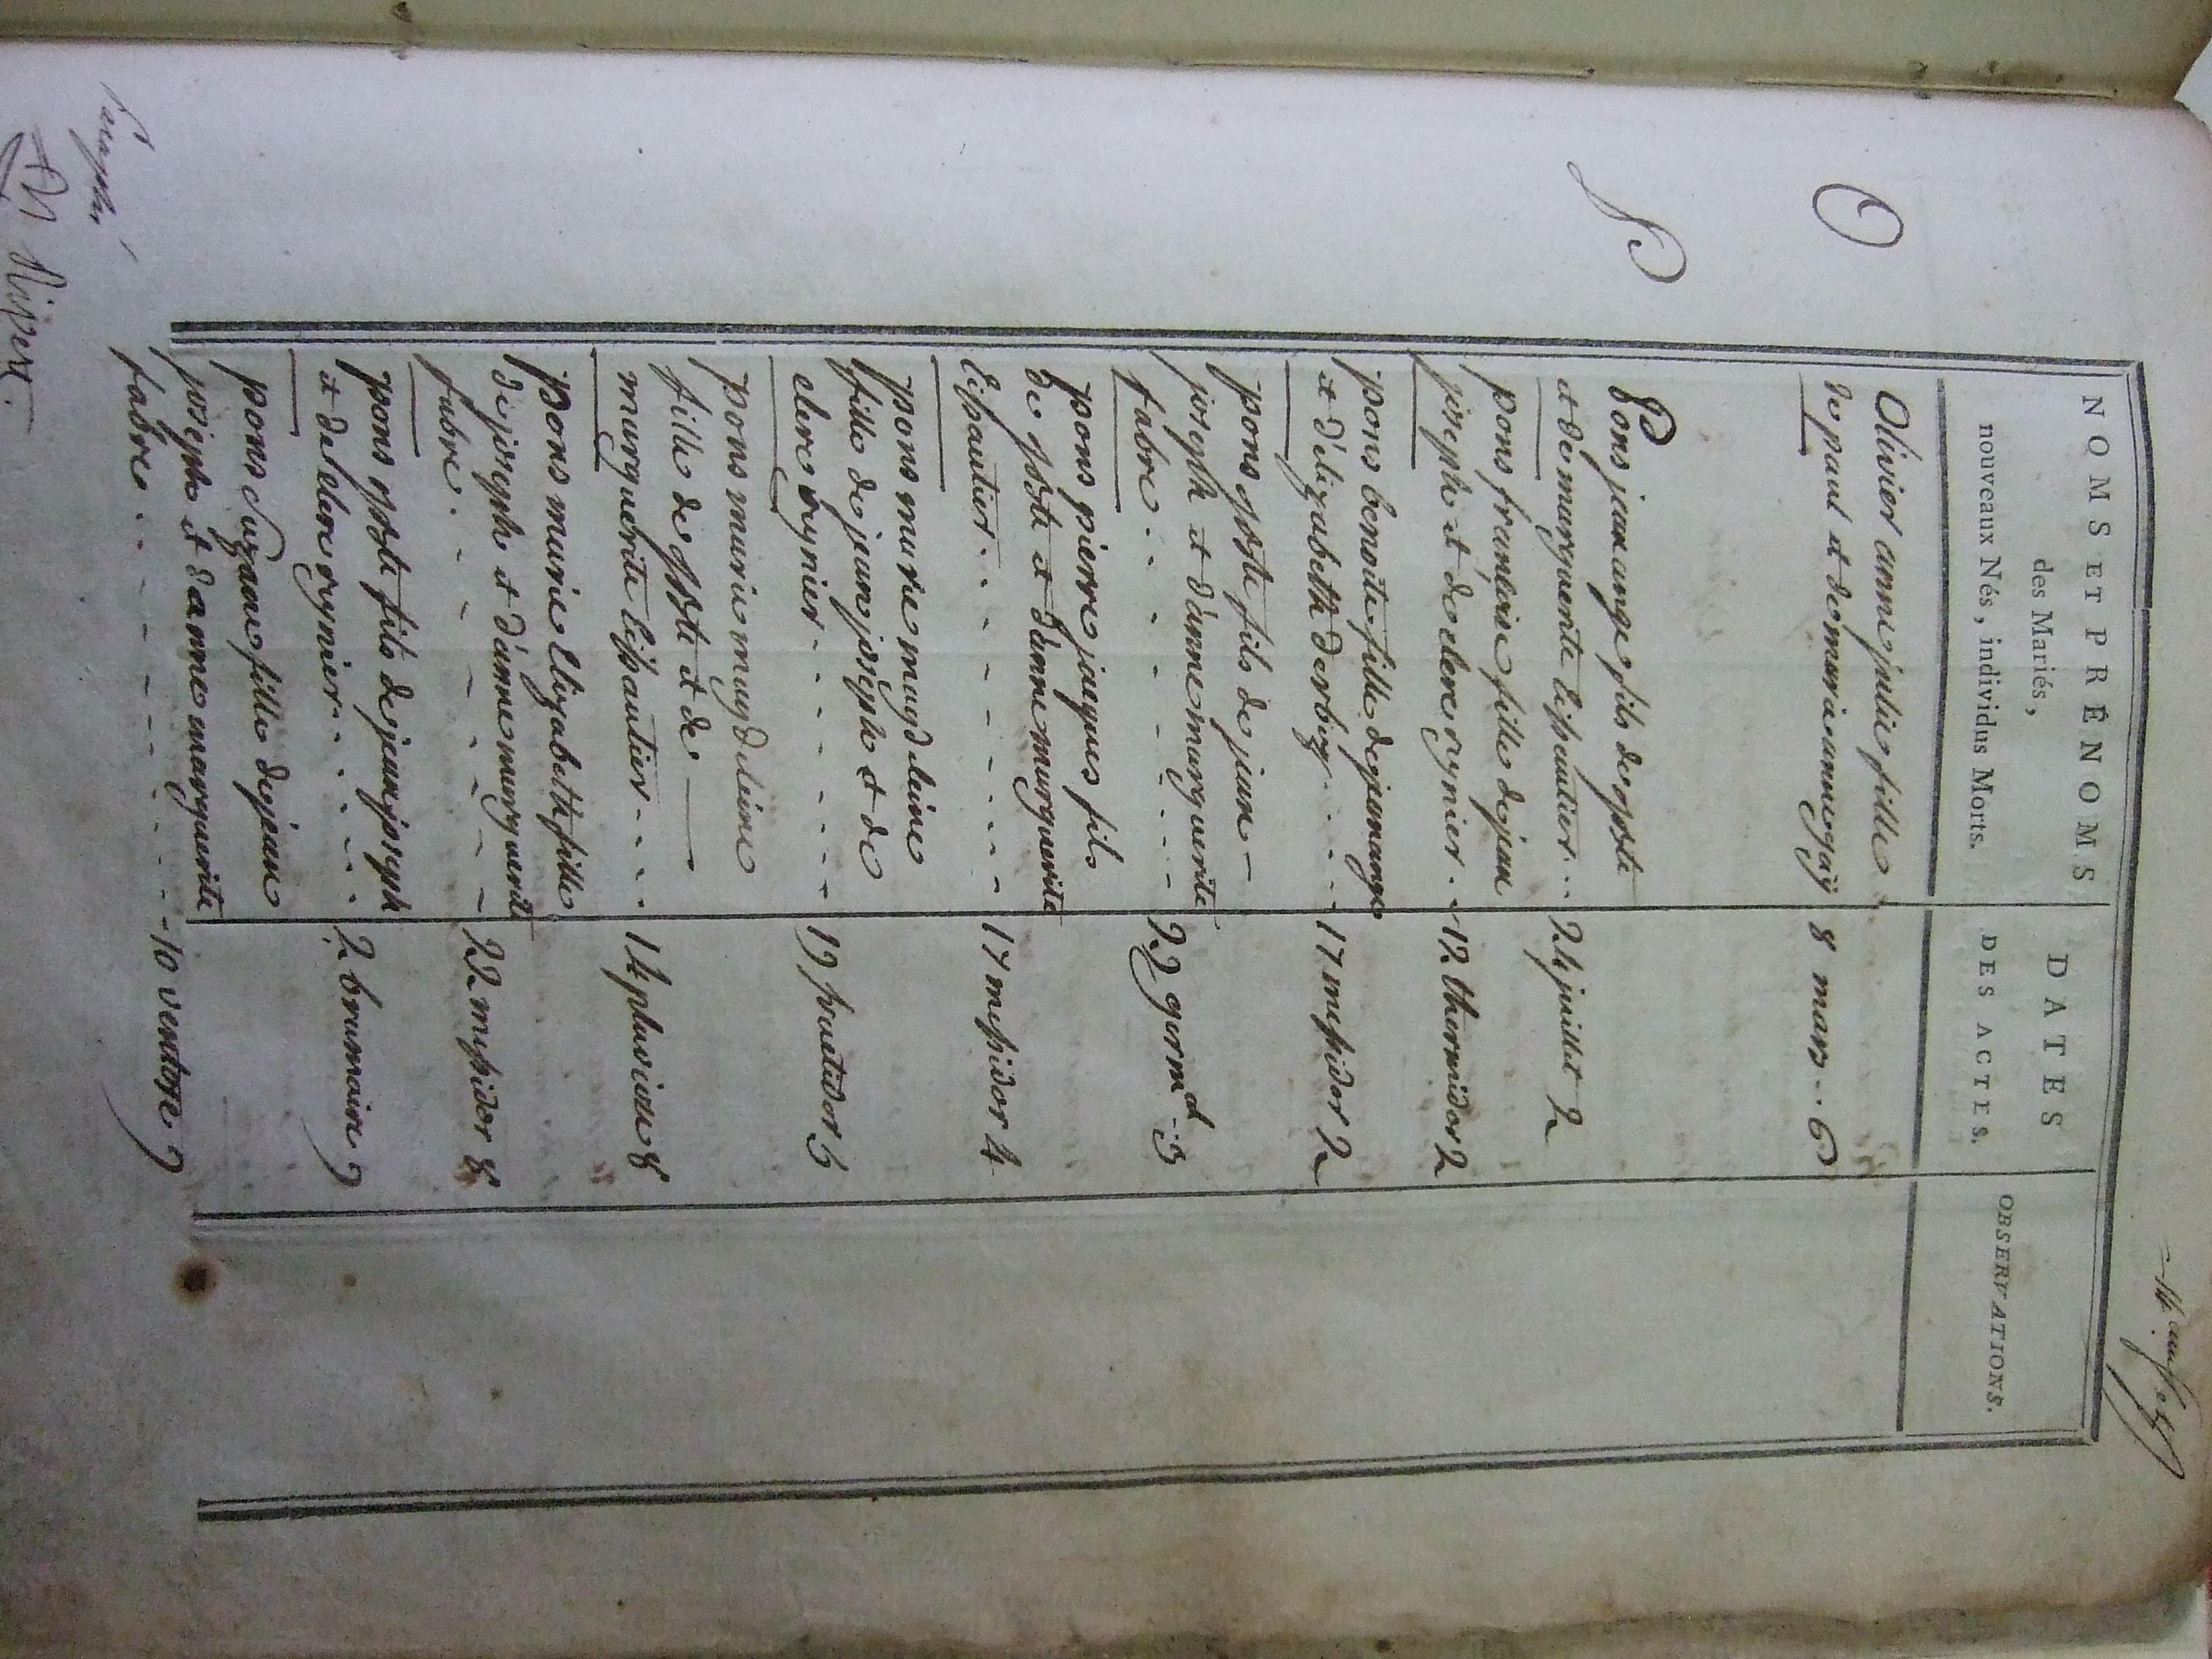 NOMS ET PRÉNOMS
des Mariés,
nouveaux Nés, individus Morts.
DATES
DES ACTES.
OBSERVATIONS.
O
Olivier anne julie fille
de paul et de marie anne gaÿ 8 mars .. 6
P
Pons jean ange fils de
et de marguerite lissautier ... 24 juillet 2
pons francoise fille de jean
joseph et de clere reynier .. 12 thermidor 2
pons benoite fille de jean ange
et d'elizabeth ..... 17 messidor 2
pons fils de jean -
joseph et d'anne marguerite
fabre ....... 29 germ^al
pons pierre jaques fils
de et d'anne marguerite
lissautier ....... 17 messidor 4
pons marie magdeleine
fille de jean joseph et de
clere reynier ...... 19 fructidor 5
pons marie magdeleine
fille de et de
marguerite lissautier ... 14 pluviose 8
pons marie elizabeth fille
de joseph et d'anne marguerite
fabre ....... 22 messidor 8
pons fils de jean joseph
et de clere reynier ..... 2 brumaire 9
pons suzanne fille de jean
joseph et d'anne marguerite
fabre ........ 10 ventose 9
Paraphé